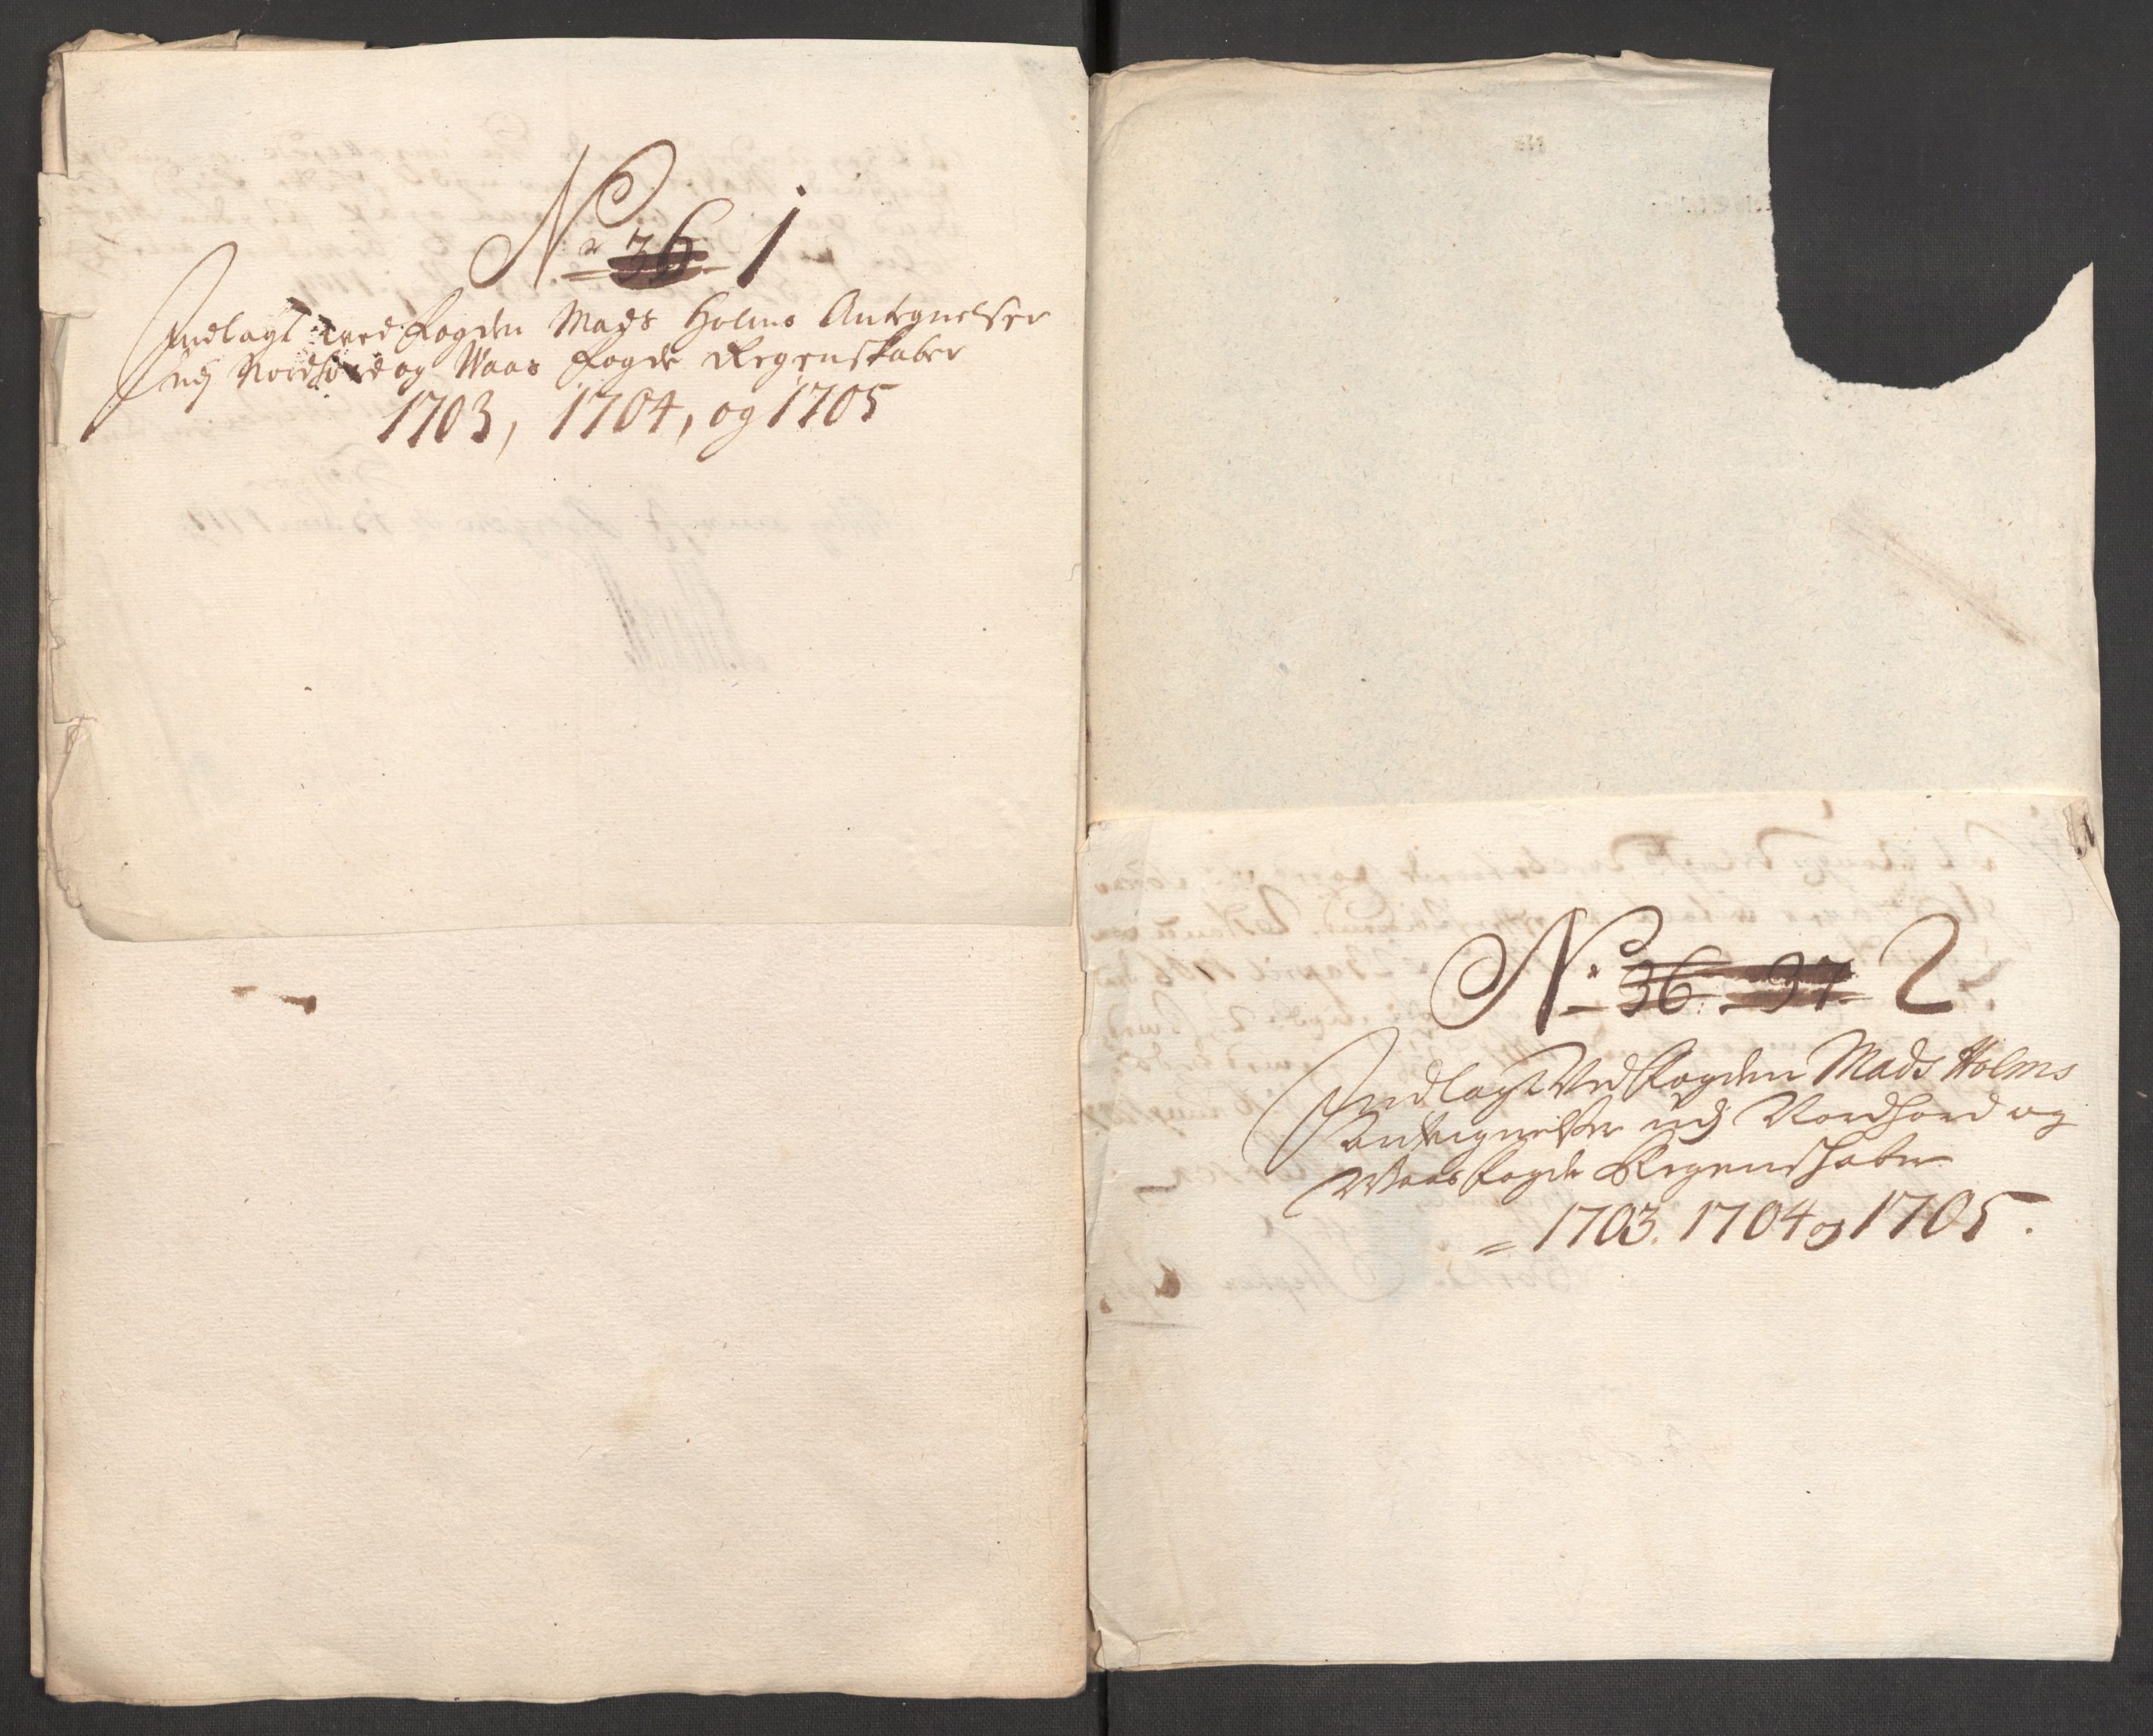 No 36 1
Indlagt wed fogden Mads Holms Antegnelser
udj Nordhord og Waas fogde Regenskaber
1703, 1704, og 1705
No 36. 37 2
Indlagt Ved fogden Mads Holms
antegnelser udj Nordhord og
Waas fogde Regenskaber
1703. 1704 og 1705.